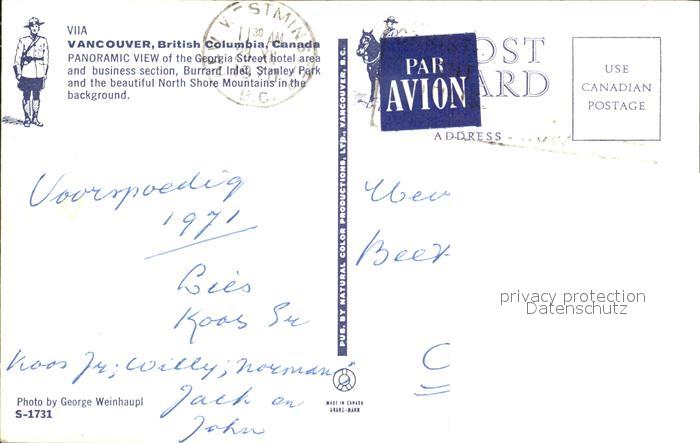 VIIA
VANCOUVER, British Columbia, Canada
PANORAMIC VIEW of the Georgia Street hotel area
and business section, Burrard Inlet, Stanley Park
and the beautiful North Shore Mountains in the
background.
WESTMIN
11 30 AM
B.C.
PAR
AVION
POST
CARD
ADDRESS
USE
CANADIAN
POSTAGE
Voorspoedig
1971
Lies
Koos Sr
Koos Jr; Willy; Norman;
Jack en
John
PUB. BY NATURAL COLOR PRODUCTIONS, LTD., VANCOUVER, B.C.
Beet
C
privacy protection
Datenschutz
MADE IN CANADA
Photo by George Weinhaupl
S-1731